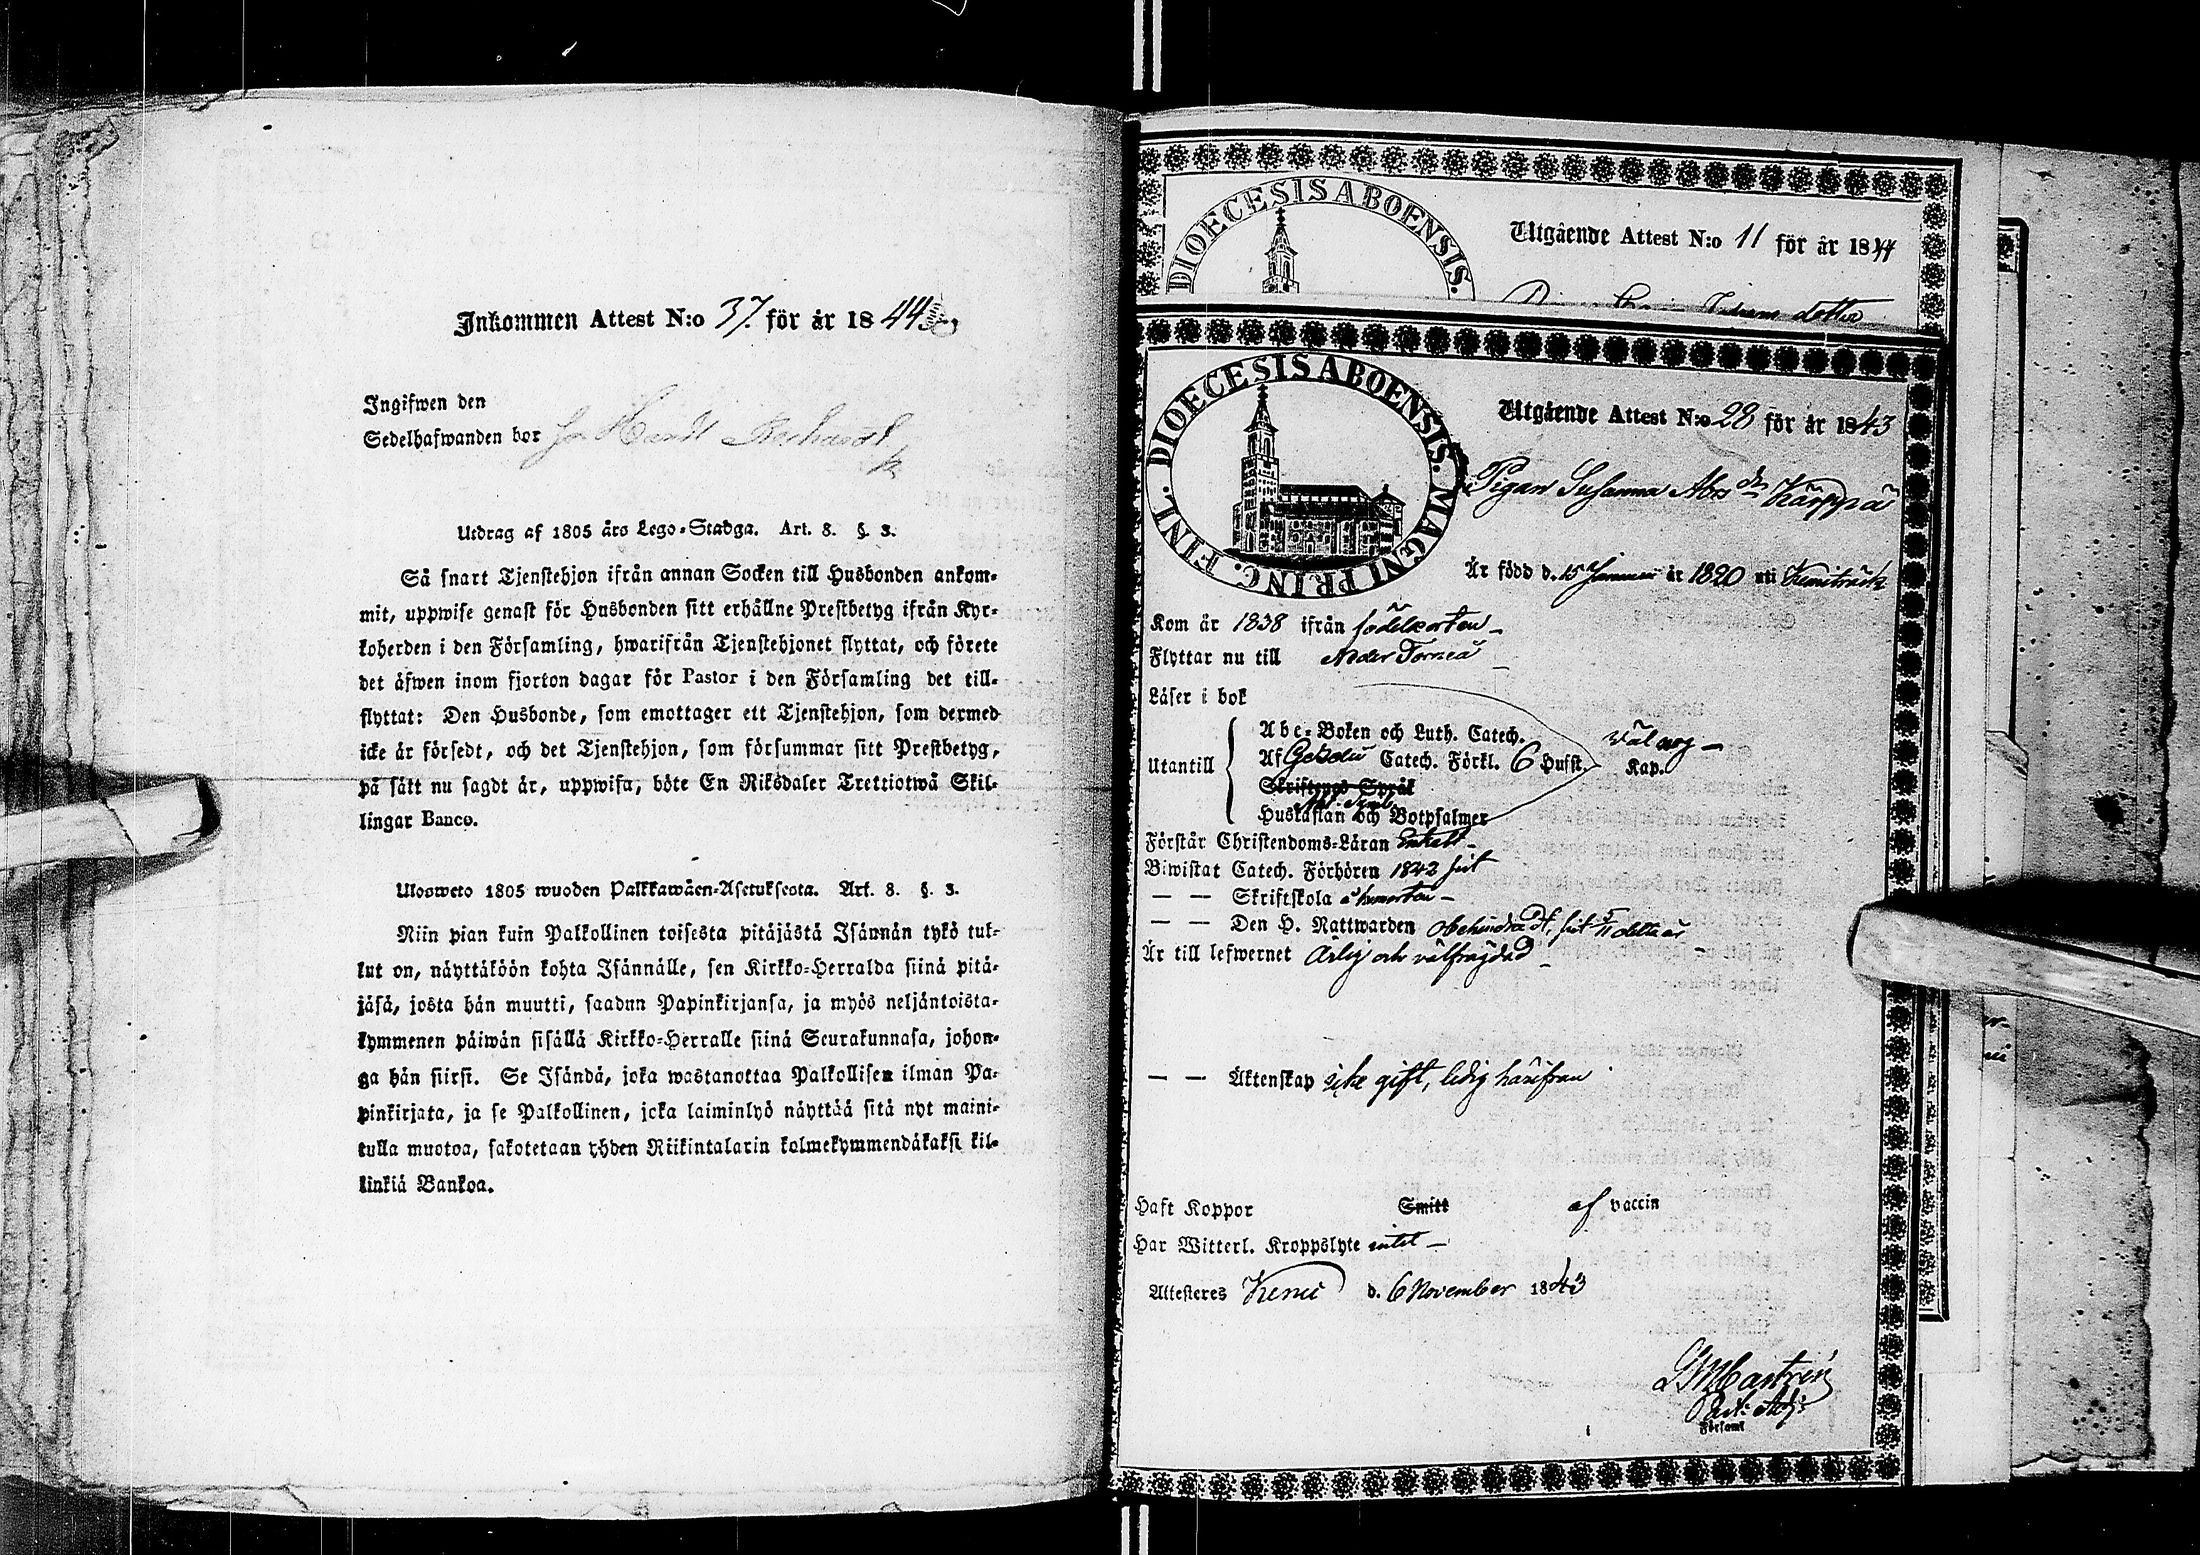 Inkommen Attest N:o 37. för år 1844
Ingifwen den
Sedelhafwanden bor
Utdrag af 1805 års Lego-Stadga. Art. 8. §. 3.
Så snart Tjenstehjon ifrån annan Socken till Husbonden ankom-
mit, uppwise genast för Husbonden sitt erhållne Prestbetyg ifrån Kyr-
koherden i den Församling, hwarifrån Tjenstehjonet flyttat, och förete
det äfwen inom fjorton dagar för Pastor i den Församling det till-
flyttat: Den Husbonde, som emottager ett Tjenstehjon, som dermed
icke är försedt, och det Tjenstehjon, som försummar sitt Prestbetyg,
på sätt nu sagdt är, uppwisa, böte En Riksdaler Trettiotwå Skil-
lingar Banco.
Ulosweto 1805 wuoden Palkkawäen-Asetuksesta. Art. 8. §. 3.
Niin pian kuin Palkollinen toisesta pitäjästä Isännän tykö tul-
lut on, näyttäköön kohta Isännälle, sen Kirkko-Herralda siinä pitä-
jäsä, josta hän muutti, saadun Papinkirjansa, ja myös neljäntoista-
kymmenen päiwän sisällä Kirkko-Herralle siinä Seurakunnasa, johon-
ga hän siirsi. Se Isändä, joka wastanottaa Palkollisen ilman Pa-
pinkirjata, ja se Palkollinen, joka laiminlyö näyttää sitä nyt maini-
tulla muotoa, sakotetaan yhden Riikintalarin kolmekymmendäkaksi kil-
linkiä Bankoa.
DIOECESIS ABOENSIS.
Utgående Attest N:o 11 för år 1844
dotter
DIOECESIS ABOENSIS. MAGNI PRINC. FINL.
Utgående Attest N:o 28 för år 1843
Pigan Susanna Abr dr Kärppä
Är född d. 15 Januari år 1820 uti Kemiträsk
Kom år 1838 ifrån födelseorten
Flyttar nu till Neder Torneå
Läser i bok
Utantill
Abc-Boken och Luth. Catech. väl nog
Af Catech. Förkl. 6 Husst. Kap.
Skriftenes Språk
Hustaflan och Botpsalmer
Förstår Christendoms-Läran Enkelt
Biwistat Catech. Förhören 1842 sist
— — Skriftskola å hemorten
— — Den H. Nattwarden obehindradt, sist 5/11 detta år
Är till lefwernet Ärlig och välfrägdad
— — Äktenskap icke gift, ledig härifrån
Haft Koppor Smitt af vaccin
Har Witterl. Kroppslyte intet
Attesteres Kemi d. 6 November 1843
Castrén
Past: Adj:
Församl